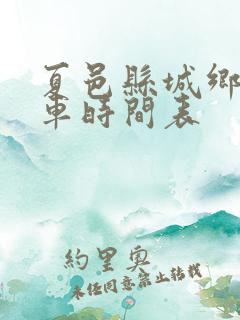 夏邑縣城鄉
車時間表
約里奧
未經同意禁止轉載